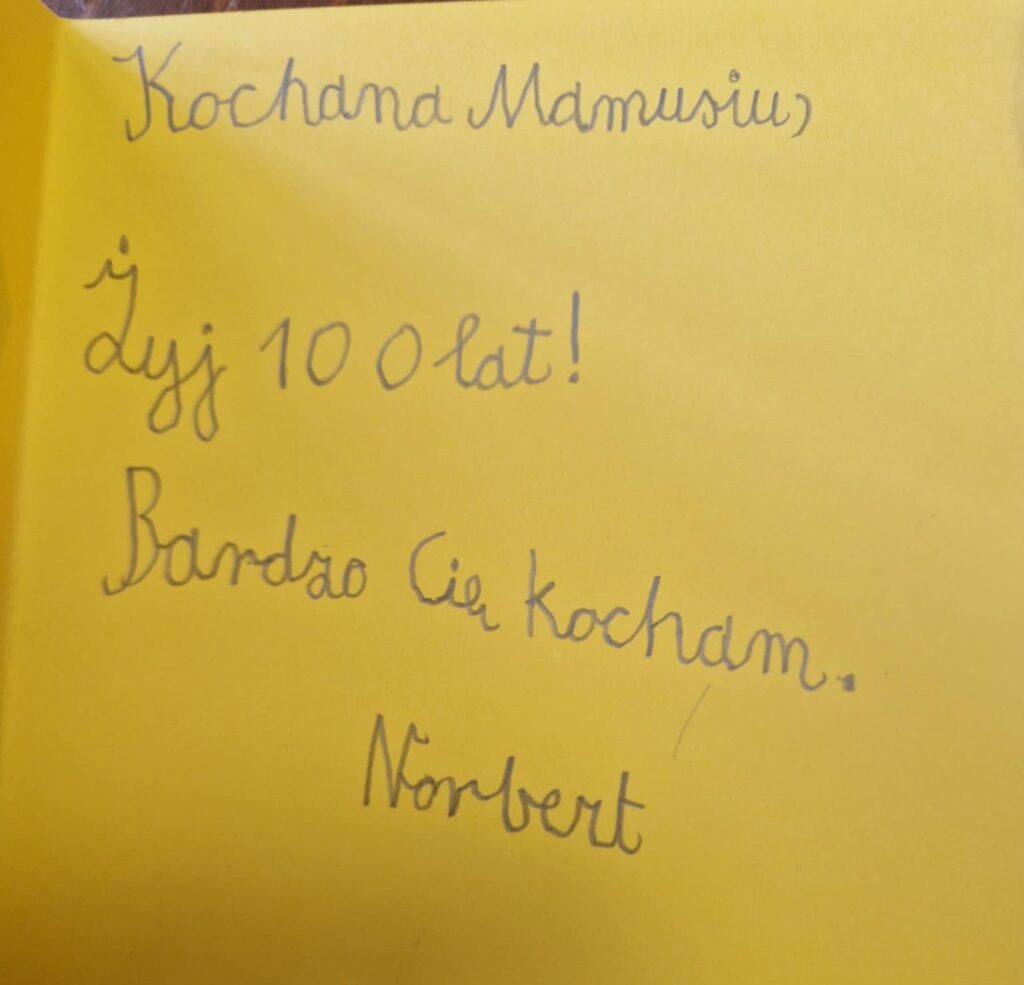 Kochana Mamusiu,
Żyj 100 lat!
Bardzo Cię kocham.
Norbert